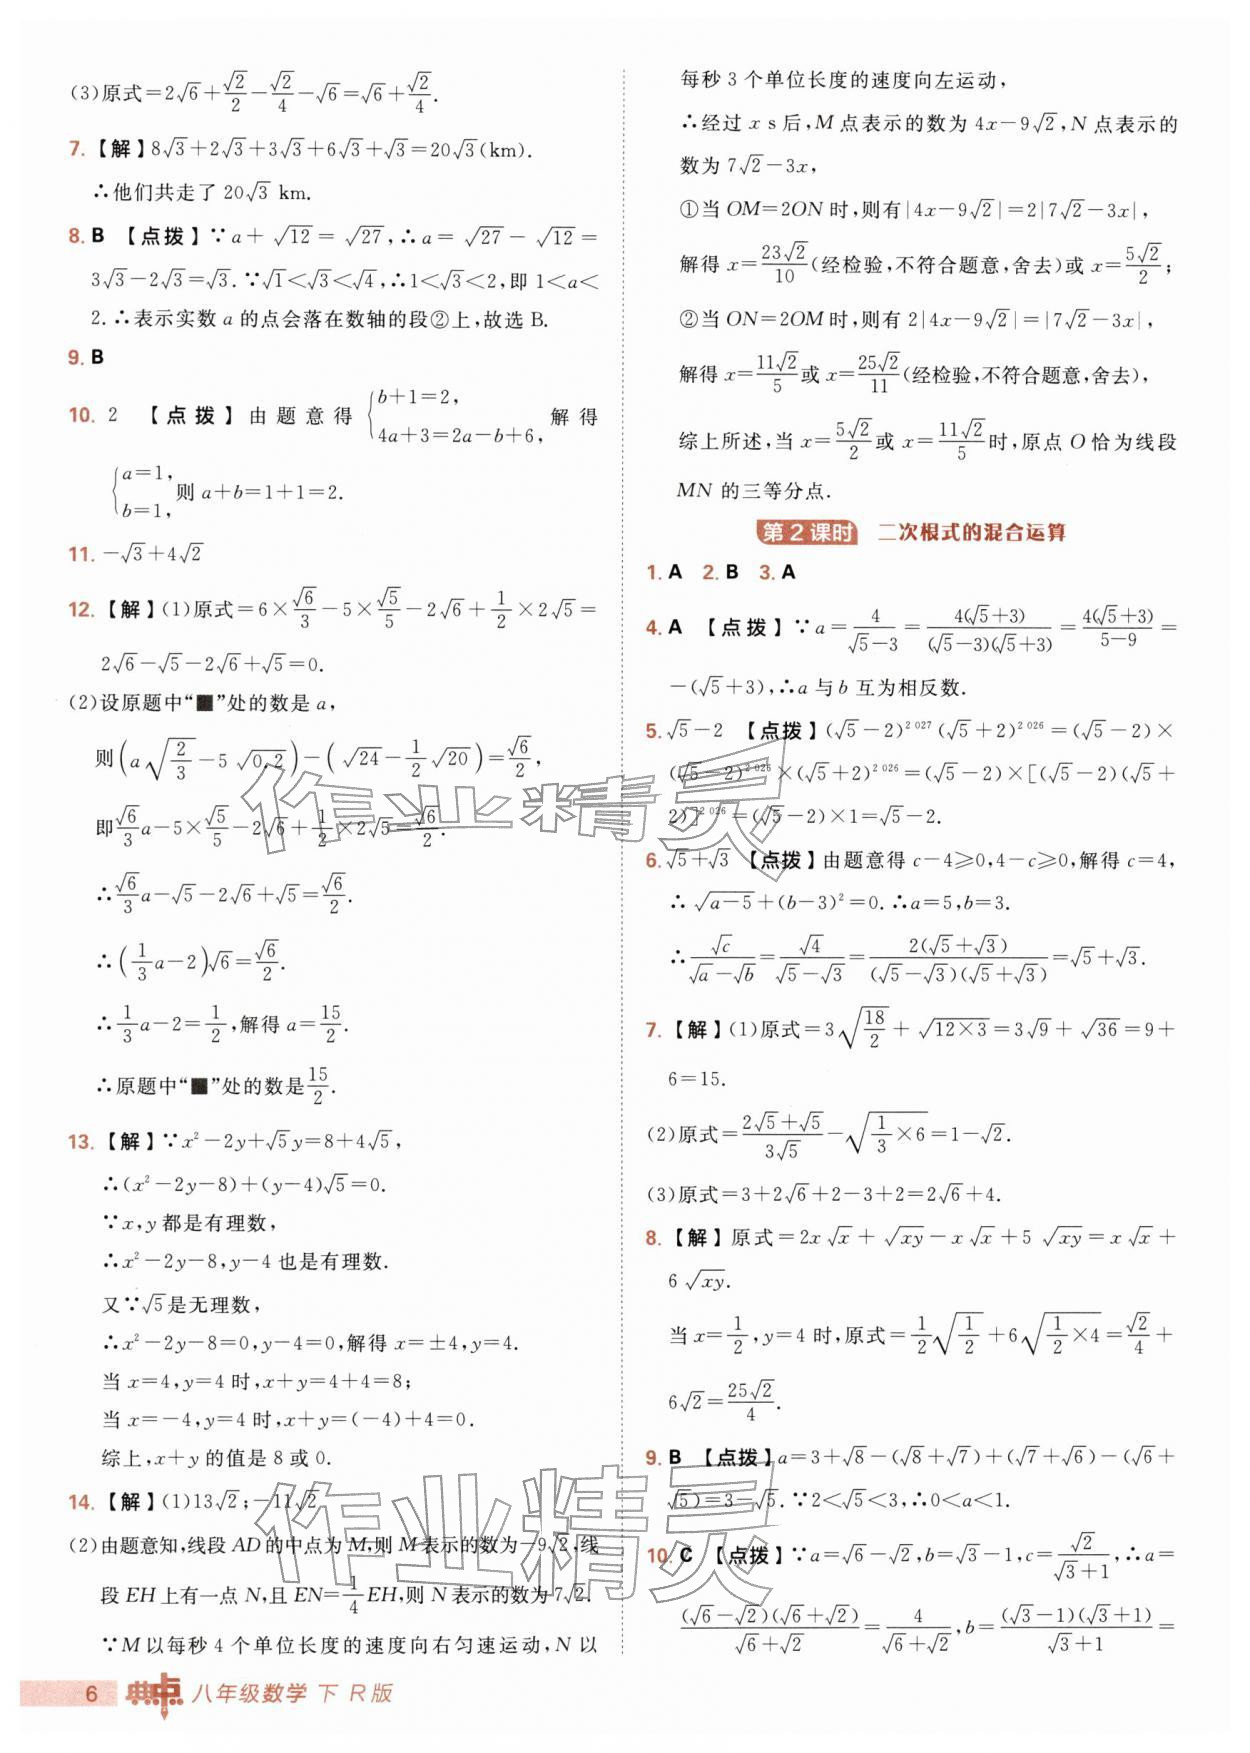 (3)原式=2√6+√2/2-√2/4-√6=√6+√2/4.
7.【解】8√3+2√3+3√3+6√3+√3=20√3(km).
∴他们共走了 20√3 km.
8. B 【点拨】∵a+√12=√27,∴a=√27-√12=
3√3-2√3=√3.∵√1<√3<√4,∴1<√3<2,即 1<a<
2.∴表示实数 a 的点会落在数轴的段②上,故选 B.
9. B
10. 2 【点拨】由题意得{b+1=2, 4a+3=2a-b+6, 解得
{a=1, b=1, 则 a+b=1+1=2.
11. -√3+4√2
12.【解】(1)原式=6×√6/3-5×√5/5-2√6+1/2×2√5=
2√6-√5-2√6+√5=0.
(2)设原题中“■”处的数是 a,
则(a√(2/3)-5√0.2)-(√24-1/2√20)=√6/2,
即√6/3a-5×√5/5-2√6+1/2×2√5=√6/2.
∴√6/3a-√5-2√6+√5=√6/2.
∴(1/3a-2)√6=√6/2.
∴1/3a-2=1/2,解得 a=15/2.
∴原题中“■”处的数是15/2.
13.【解】∵x²-2y+√5y=8+4√5,
∴(x²-2y-8)+(y-4)√5=0.
∵x,y 都是有理数,
∴x²-2y-8,y-4 也是有理数.
又∵√5是无理数,
∴x²-2y-8=0,y-4=0,解得 x=±4,y=4.
当 x=4,y=4 时,x+y=4+4=8;
当 x=-4,y=4 时,x+y=(-4)+4=0.
综上,x+y 的值是 8 或 0.
14.【解】(1)13√2;-11√2
(2)由题意知,线段 AD 的中点为 M,则 M 表示的数为-9√2,线
段 EH 上有一点 N,且 EN=1/4EH,则 N 表示的数为7√2.
∵M 以每秒 4 个单位长度的速度向右匀速运动,N 以
每秒 3 个单位长度的速度向左运动,
∴经过 x s后,M 点表示的数为 4x-9√2,N 点表示的
数为 7√2-3x,
①当 OM=2ON 时,则有|4x-9√2|=2|7√2-3x|,
解得 x=23√2/10(经检验,不符合题意,舍去)或 x=5√2/2;
②当 ON=2OM 时,则有 2|4x-9√2|=|7√2-3x|,
解得 x=11√2/5或 x=25√2/11(经检验,不符合题意,舍去),
综上所述,当 x=5√2/2或 x=11√2/5时,原点 O 恰为线段
MN 的三等分点.
第2课时 二次根式的混合运算
1. A 2. B 3. A
4. A 【点拨】∵a=4/(√5-3)=4(√5+3)/((√5-3)(√5+3))=4(√5+3)/(5-9)=
-(√5+3),∴a 与 b 互为相反数.
5. √5-2 【点拨】(√5-2)^2 027(√5+2)^2 026=(√5-2)×
(√5-2)^2 026×(√5+2)^2 026=(√5-2)×[(√5-2)(√5+
2)]^2 026=(√5-2)×1=√5-2.
6. √5+√3 【点拨】由题意得 c-4≥0,4-c≥0,解得 c=4,
∴√(a-5)+(b-3)²=0.∴a=5,b=3.
∴√c/(√a-√b)=√4/(√5-√3)=2(√5+√3)/((√5-√3)(√5+√3))=√5+√3.
7.【解】(1)原式=3√(18/2)+√(12×3)=3√9+√36=9+
6=15.
(2)原式=(2√5+√5)/3√5-√(1/3×6)=1-√2.
(3)原式=3+2√6+2-3+2=2√6+4.
8.【解】原式=2x√x+√xy-x√x+5√xy=x√x+
6√xy.
当 x=1/2,y=4 时,原式=1/2√(1/2)+6√(1/2×4)=√2/4+
6√2=25√2/4.
9. B 【点拨】a=3+√8-(√8+√7)+(√7+√6)-(√6+
√5)=3-√5.∵2<√5<3,∴0<a<1.
10. C 【点拨】∵a=√6-√2,b=√3-1,c=√2/(√3+1),∴a=
(√6-√2)(√6+√2)/(√6+√2)=4/(√6+√2),b=(√3-1)(√3+1)/(√3+1)=
6 典点 八年级数学 下 R版
作业精灵
作业精灵